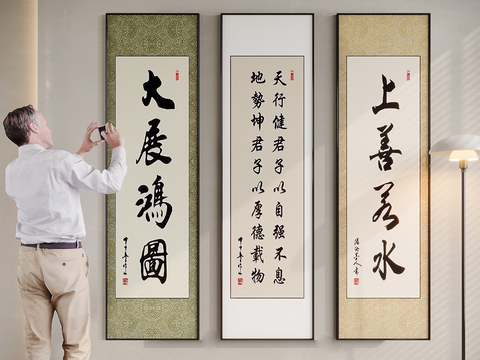 大展鴻圖
天行健君子以自强不息
地勢坤君子以厚德載物
上善若水